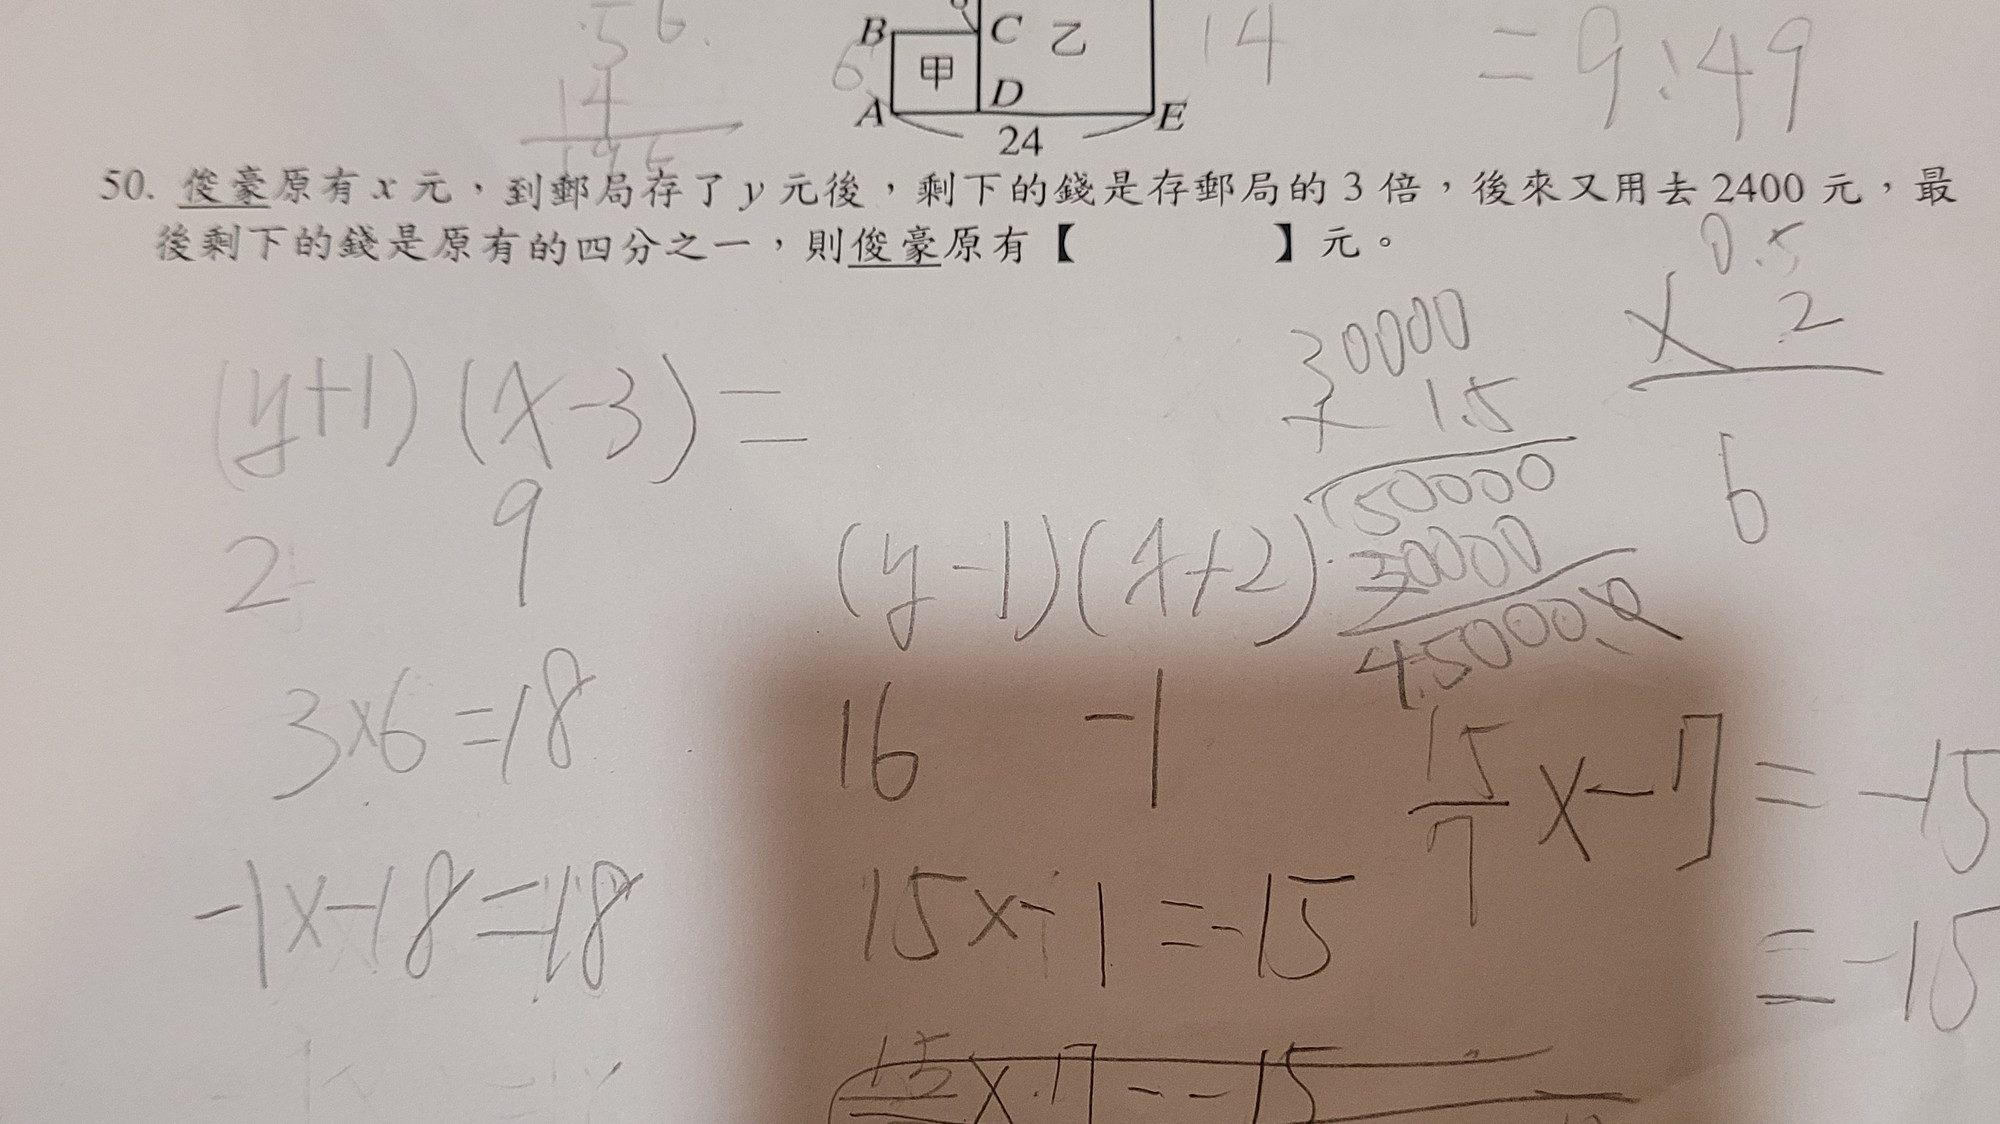 56.
14
196
B C 乙
6 甲
A D E
24
14
= 9:49
50. 俊豪原有 x 元，到郵局存了 y 元後，剩下的錢是存郵局的 3 倍，後來又用去 2400 元，最
後剩下的錢是原有的四分之一，則俊豪原有【 】元。
0.5
× 2
6
30000
× 1.5
150000
30000
45000.0
(y+1) (x-3) =
2 9
3×6=18
-1×-18=18
(y-1)(x+2)
16 -1
15×-1=-15
15/7 × -7 = -15
= -15
15 × 7 = -15